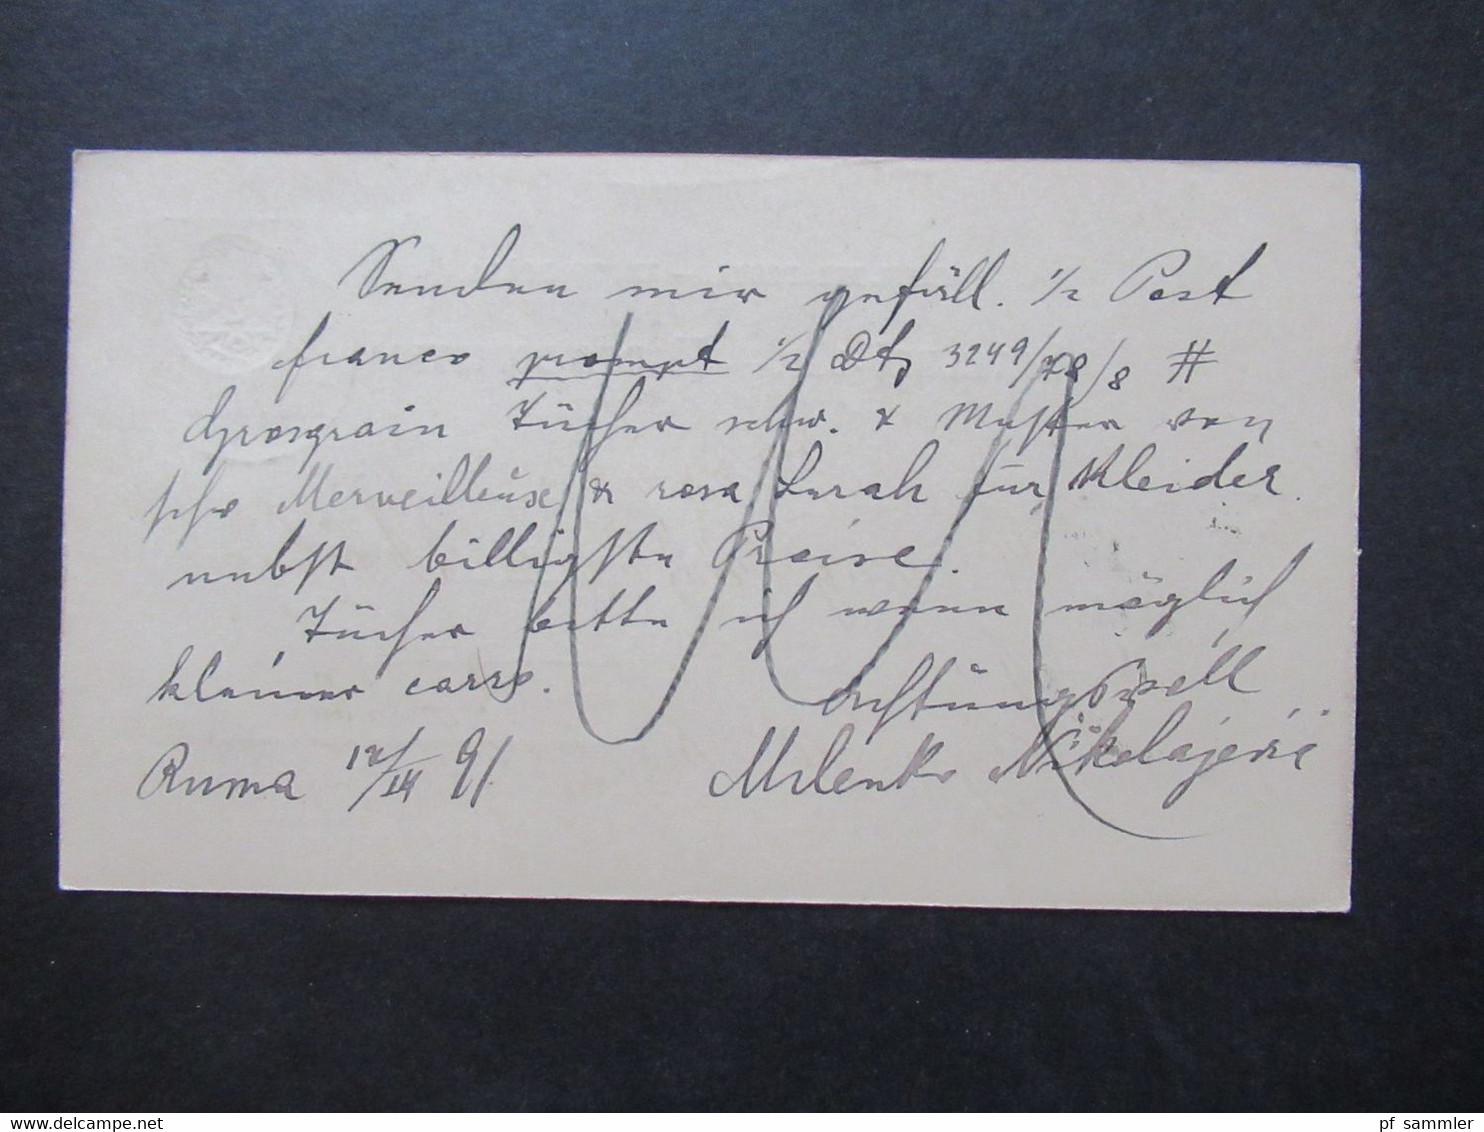 Senden mir gefäll. 1/2 Post
franco prompt 1/2 Dtz 3249/78/8 #
Grosgrain Tücher schw. & Muster von
schw Merveilleuse & rosa Surah für Kleider.
nebst billigste Preise.
Tücher bitte ich wenn möglich
kleiner carro.
Achtungsvoll
Ruma 12/IX 91. Milenko Nikolajević
pf_sammler